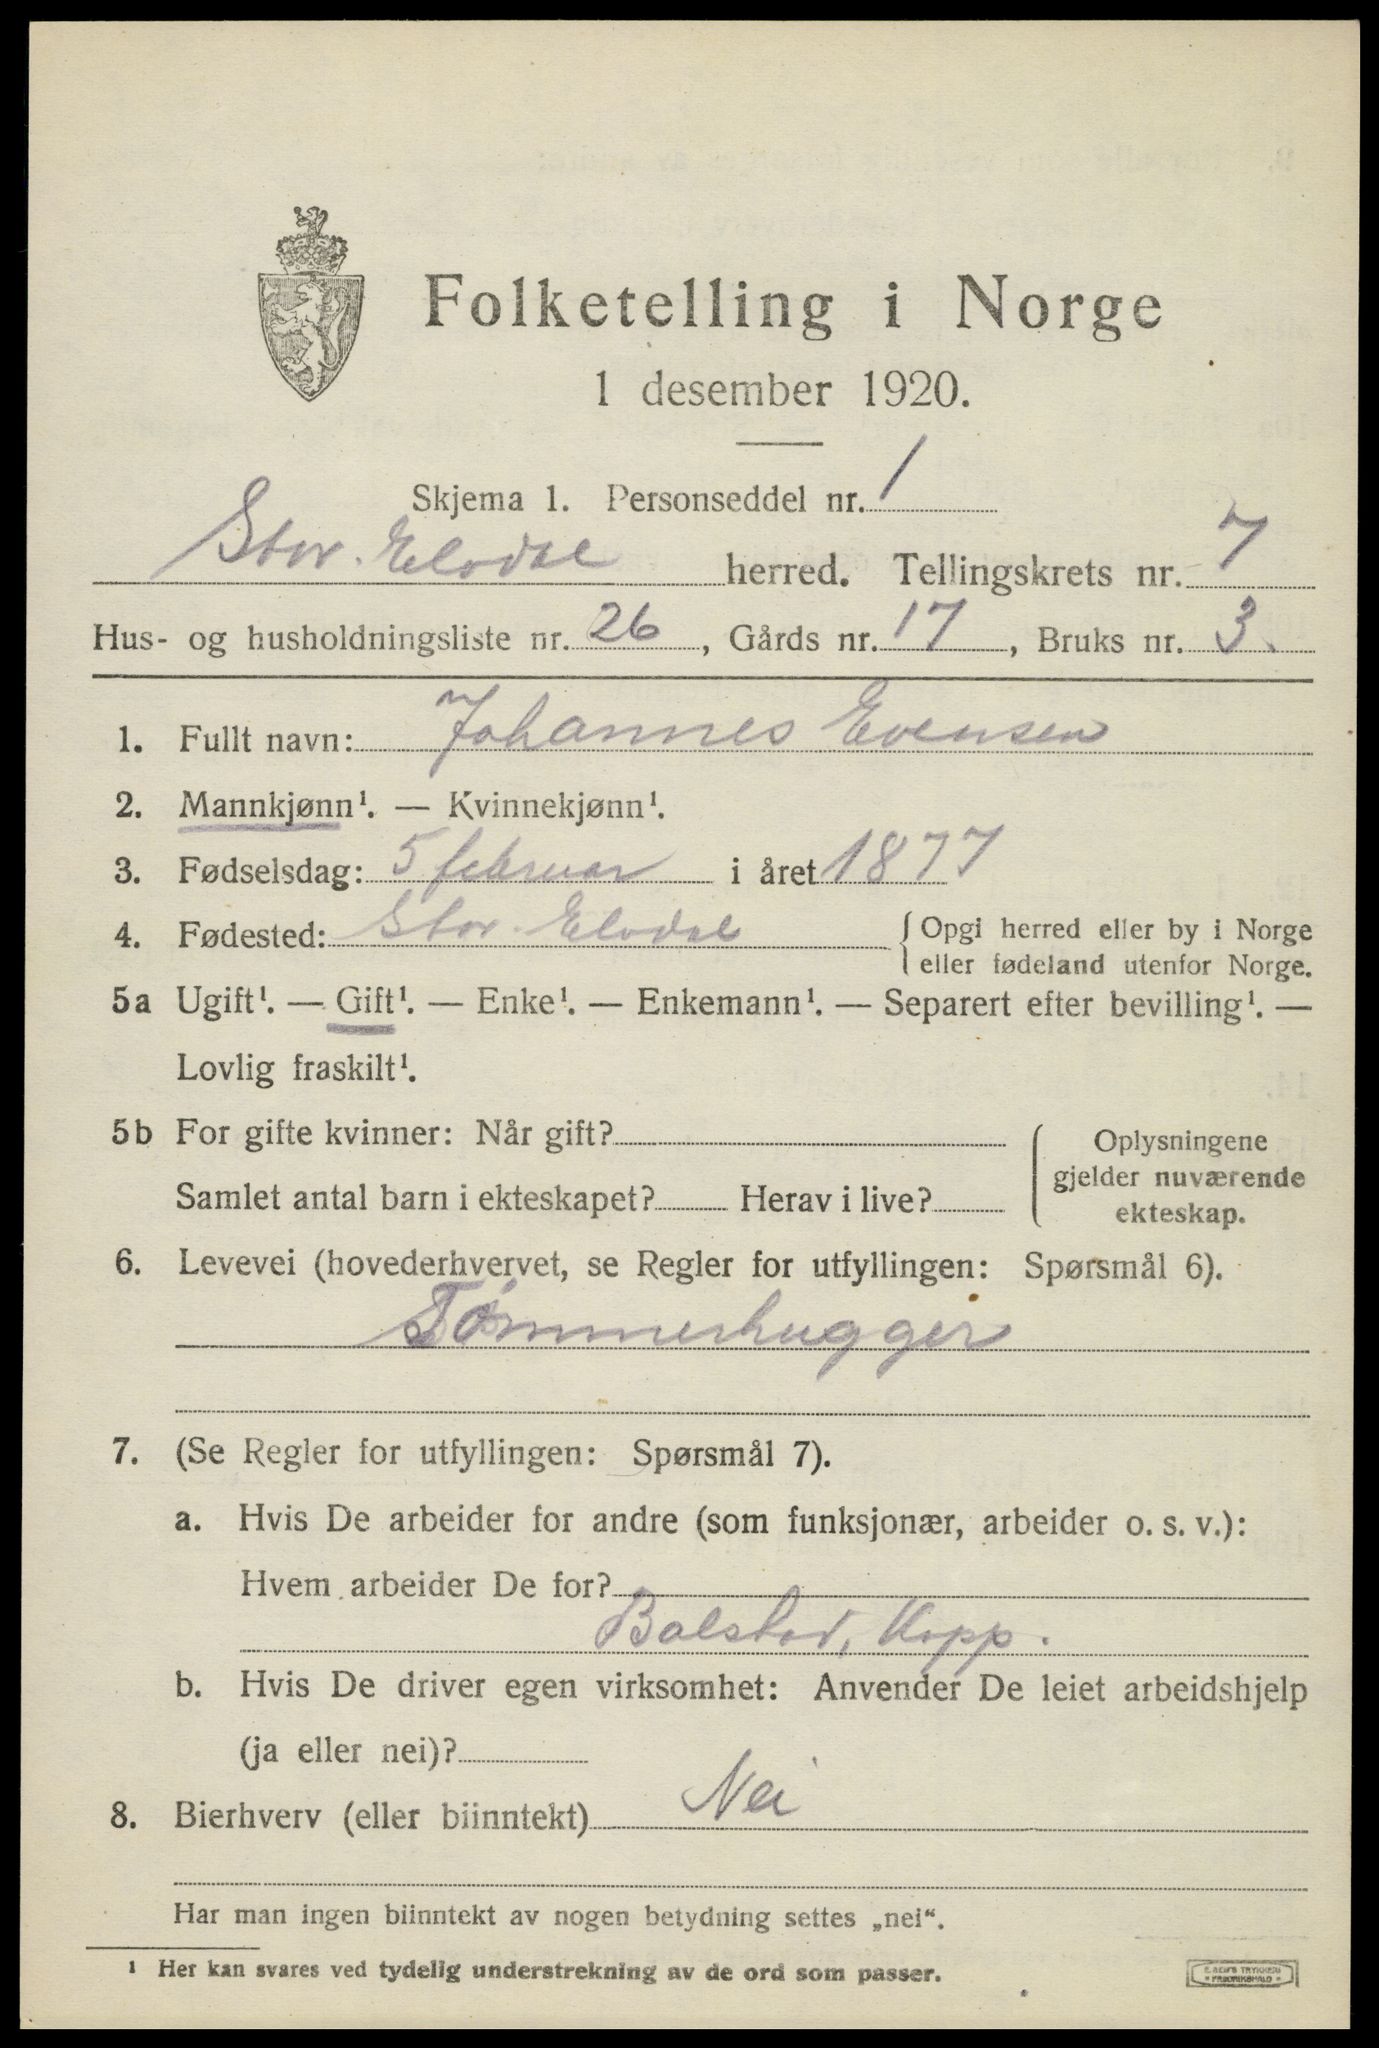 Folketelling i Norge
1 desember 1920.
Skjema 1. Personseddel nr. 1
Stor. Elvdal herred. Tellingskrets nr. 7
Hus- og husholdningsliste nr. 26, Gårds nr. 17, Bruks nr. 3.
1. Fullt navn: Johannes Evensen
2. Mannkjønn¹. — Kvinnekjønn¹.
3. Fødselsdag: 5 februar i året 1877
4. Fødested: Stor. Elvdal { Opgi herred eller by i Norge
eller fødeland utenfor Norge.
5a Ugift¹. — Gift¹. — Enke¹. — Enkemann¹. — Separert efter bevilling¹. —
Lovlig fraskilt¹.
5b For gifte kvinner: Når gift?
Samlet antal barn i ekteskapet? Herav i live?
{ Oplysningene
gjelder nuværende
ekteskap.
6. Levevei (hovederhvervet, se Regler for utfyllingen: Spørsmål 6).
Tømmerhugger
7. (Se Regler for utfyllingen: Spørsmål 7).
a. Hvis De arbeider for andre (som funksjonær, arbeider o. s. v.):
Hvem arbeider De for?
Bolstad, Kopp.
b. Hvis De driver egen virksomhet: Anvender De leiet arbeidshjelp
(ja eller nei)?
8. Bierhverv (eller biinntekt) Nei
Har man ingen biinntekt av nogen betydning settes „nei“.
¹ Her kan svares ved tydelig understrekning av de ord som passer.
TRYKKERI
FREDRIKSHALD